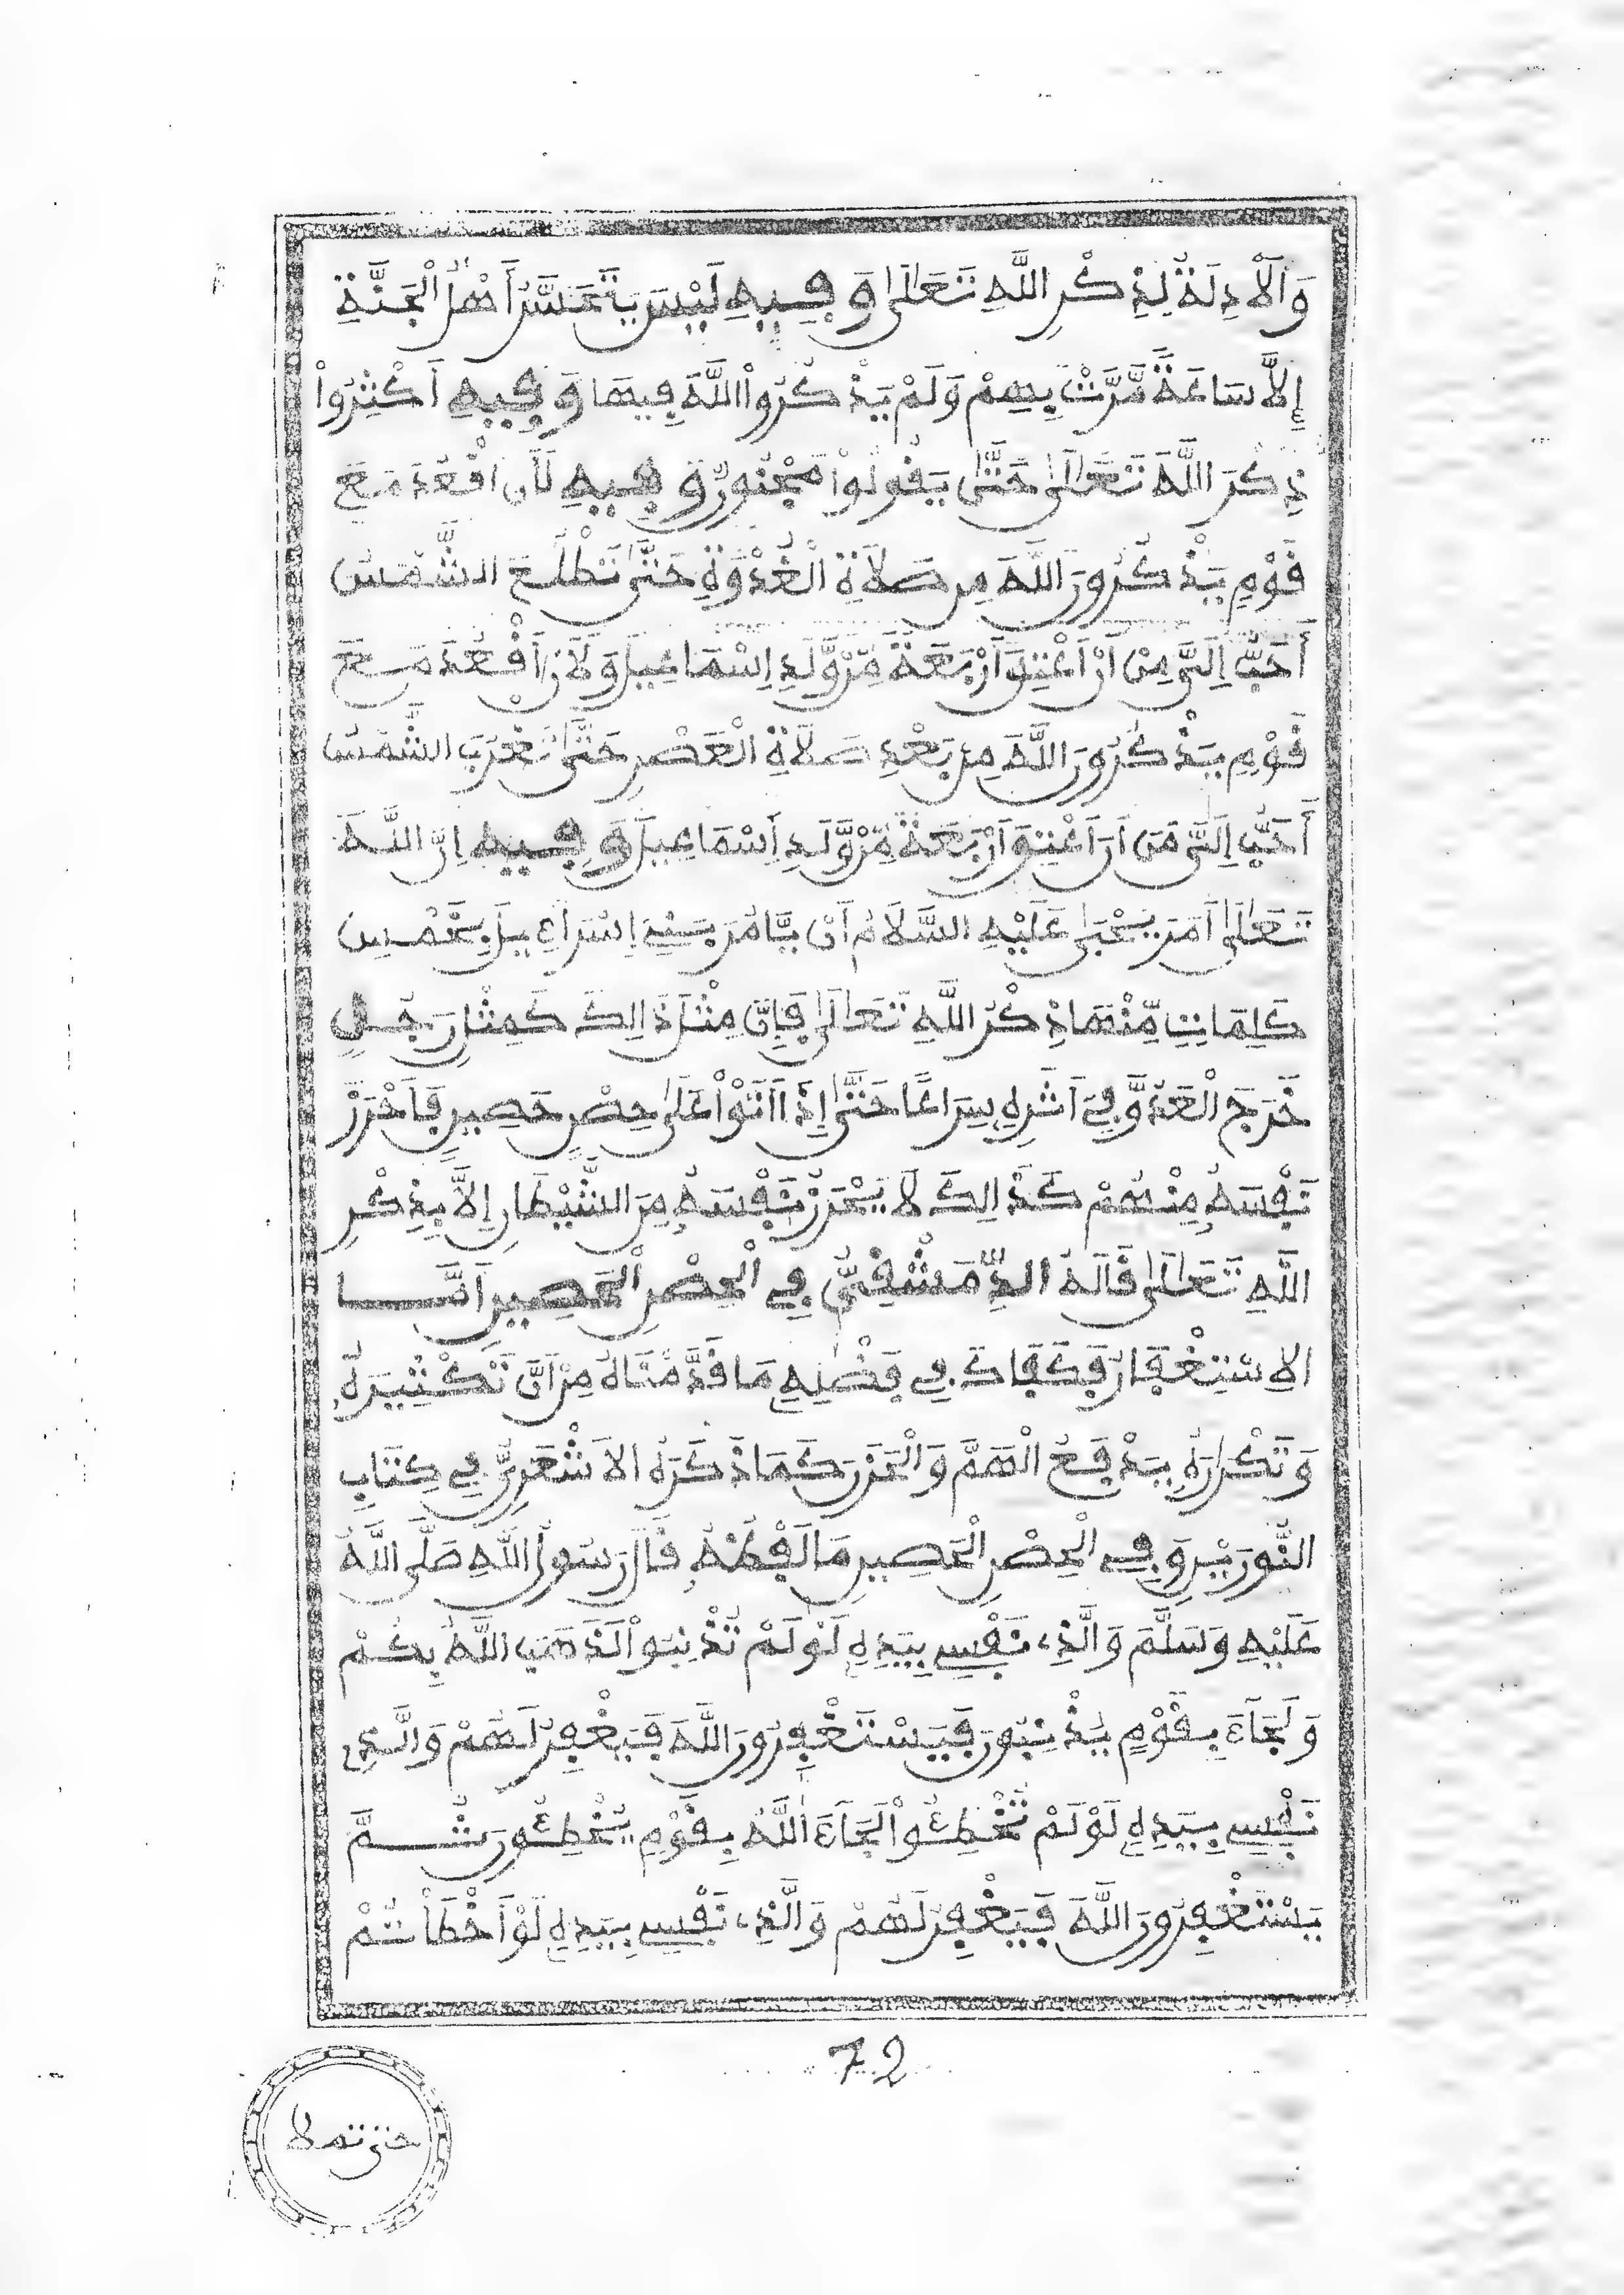 وَالَادِلَةُ لِذِكْرِ اللَّهِ تَعَالَى وَفِيهِ لَيْسَ يَتَحَسَّرُ أَهْلُ الْجَنَّةِ
إِلَّا سَاعَةً مَّرَّتْ بِهِمْ وَلَمْ يَذْكُرُواْ اللَّهَ فِيهَا وَفِيهِ أَكْثِرُواْ
ذِكْرَ اللَّهِ تَعَالَى حَتَّى يَقُولُواْ مَجْنُونٌ وَفِيهِ لَأَن اَقْعُدَ مَعَ
قَوْمٍ يَذْكُرُونَ اللَّهَ مِن صَلَاةِ الْغُدْوَةِ حَتَّى تَطْلُعَ الشَّمْسُ
أَحَبُّ إِلَيَّ مِنْ أَنْ أَعْتِقَ أَرْبَعَةً مِّن وَّلَدِ إِسْمَاعِيلَ وَلَأَنْ أَقْعُدَ مَعَ
قَوْمٍ يَذْكُرُونَ اللَّهَ مِن بَعْدِ صَلَاةِ الْعَصْرِ حَتَّى تَغْرُبَ الشَّمْسُ
أَحَبُّ إِلَيَّ مِنَ أَنَ اَعْتِقَ أَرْبَعَةً مِّن وَّلَدِ إِسْمَاعِيلَ وَفِيهِ إِنَّ اللَّهَ
تَعَالَى أَمَرَ يَحْيَى عَلَيْهِ السَّلَامُ أَنْ يَّامُرَ بَنِي إِسْرَاءِيلَ بِخَمْسِ
كَلِمَاتٍ مِّنْهَا ذِكْرُ اللَّهِ تَعَالَى فَإِنَّ مِثْلَ ذَالِكَ كَمِثْلِ رَجُلٍ
خَرَجَ الْعَدُوُّ فِي أَثَرِهِ سِرَاعًا حَتَّى إِذَا أَتَوْاْ عَلَى حِصْنٍ حَصِينٍ فَأَحْرَزَ
نَفْسَهُ مِنْهُمْ كَذَالِكَ لَا يَحْرَزُ نَفْسَهُ مِنَ الشَّيْطَانِ إِلَّا بِذِكْرِ
اللَّهِ تَعَالَى قَالَهُ الدِّمَشْقِيُّ فِي الْحِصْنِ الْحَصِينِ أَمَّا
الِاسْتِغْفَارُ فَكَفَاكَ فِي فَضْلِهِ مَا قَدَّمْنَاهُ مِنْ أَنَّ تَكْثِيرَهُ
وَتَكْرَارَهُ يَدْفَعُ الْهَمَّ وَالْحَزَنَ كَمَا ذَكَرَهُ الْأَشْعَرِيُّ فِي كِتَابِ
النُّورَيْنِ وَفِي الْحِصْنِ الْحَصِينِ مَا لَفْظُهُ قَالَ رَسُولُ اللَّهِ صَلَّى اللَّهُ
عَلَيْهِ وَسَلَّمَ وَالَّذِي نَفْسِي بِيَدِهِ لَوْ لَمْ تُذْنِبُواْ لَذَهَبَ اللَّهُ بِكُمْ
وَلَجَاءَ بِقَوْمٍ يُذْنِبُونَ فَيَسْتَغْفِرُونَ اللَّهَ فَيَغْفِرُ لَهُمْ وَالَّذِي
نَفْسِي بِيَدِهِ لَوْ لَمْ تُخْطِئُواْ لَجَاءَ اللَّهُ بِقَوْمٍ يُخْطِئُونَ ثُمَّ
يَسْتَغْفِرُونَ اللَّهَ فَيَغْفِرُ لَهُمْ وَالَّذِي نَفْسِي بِيَدِهِ لَوْ أَخْطَأْتُمْ
72
حتى تملا